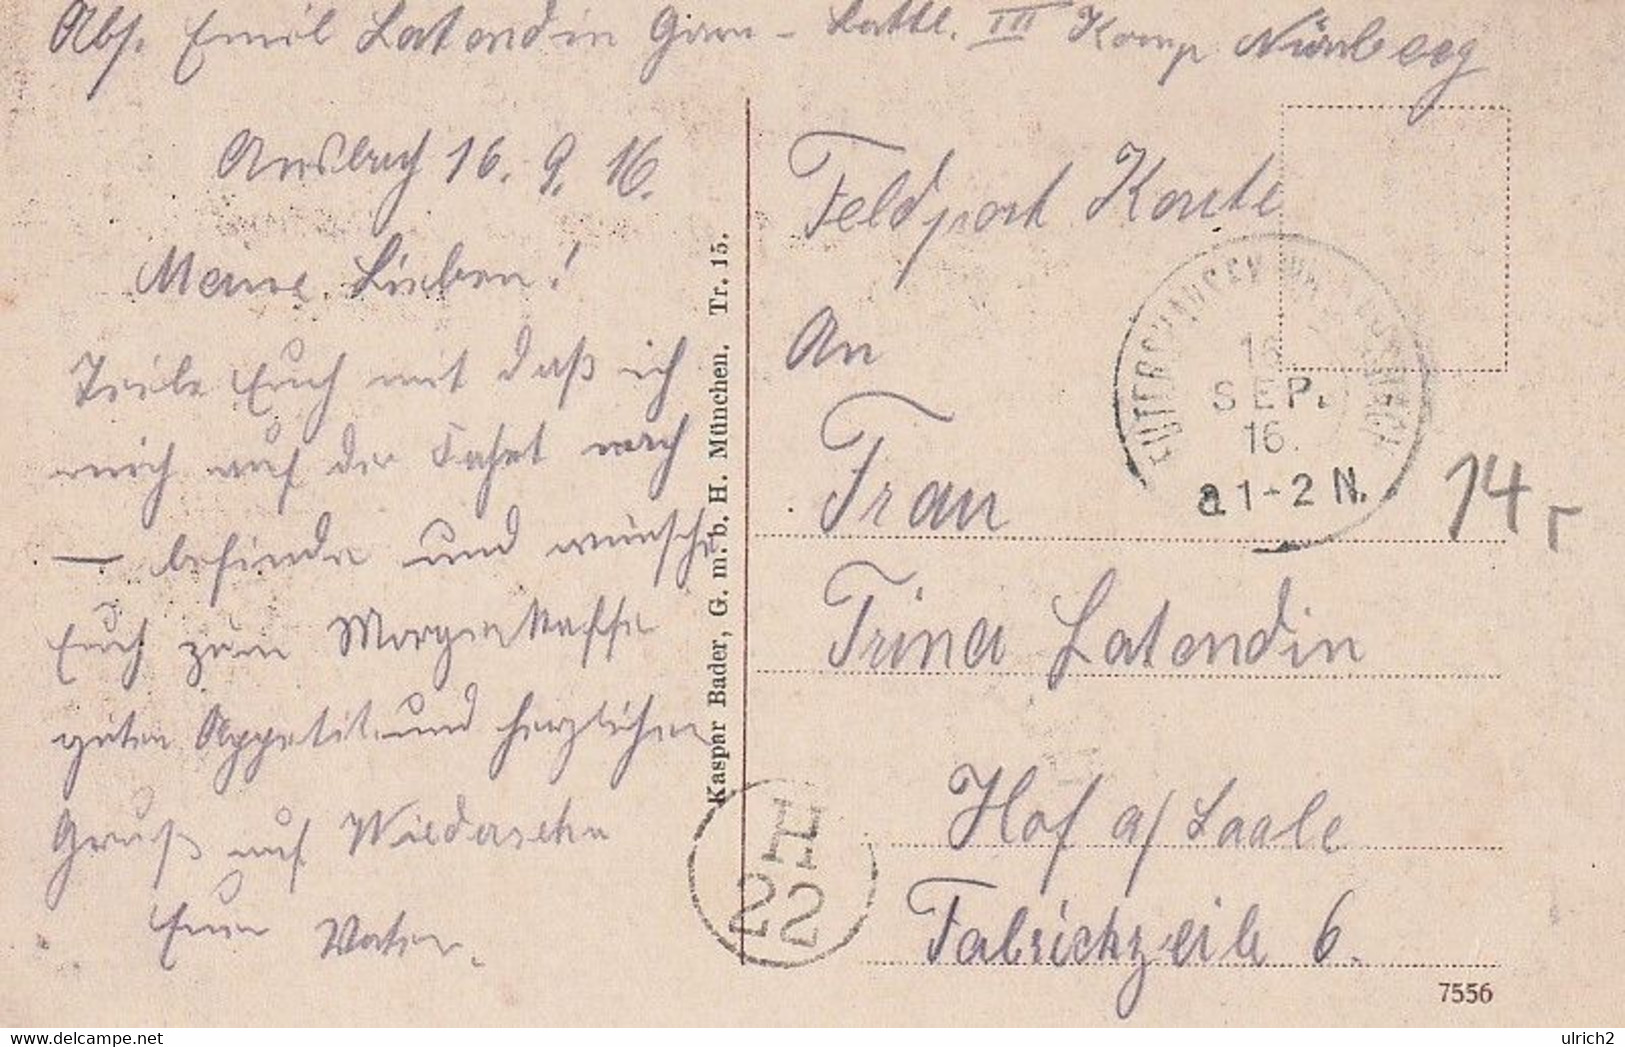 Abs. Emil Latendin Garn-Battl. III Komp Nürnberg
Ansbach 16. 9. 16.
Meine Lieben!
Teile Euch mit daß ich
mich auf der Fahrt nach
— befinde und wünsche
Euch zum Morgenkaffe
guten Appetit und herzlichen
Gruß auf Wiedersehn
Euer Vater.
Kaspar Bader, G. m. b. H. München. Tr. 15.
Feldpost Karte
An
Frau
Trina Latendin
Hof a/ Saale
Fabrikzeile 6.
16.
SEP.
16.
a 1-2 N.
14,-
H
22
7556
ulrich2